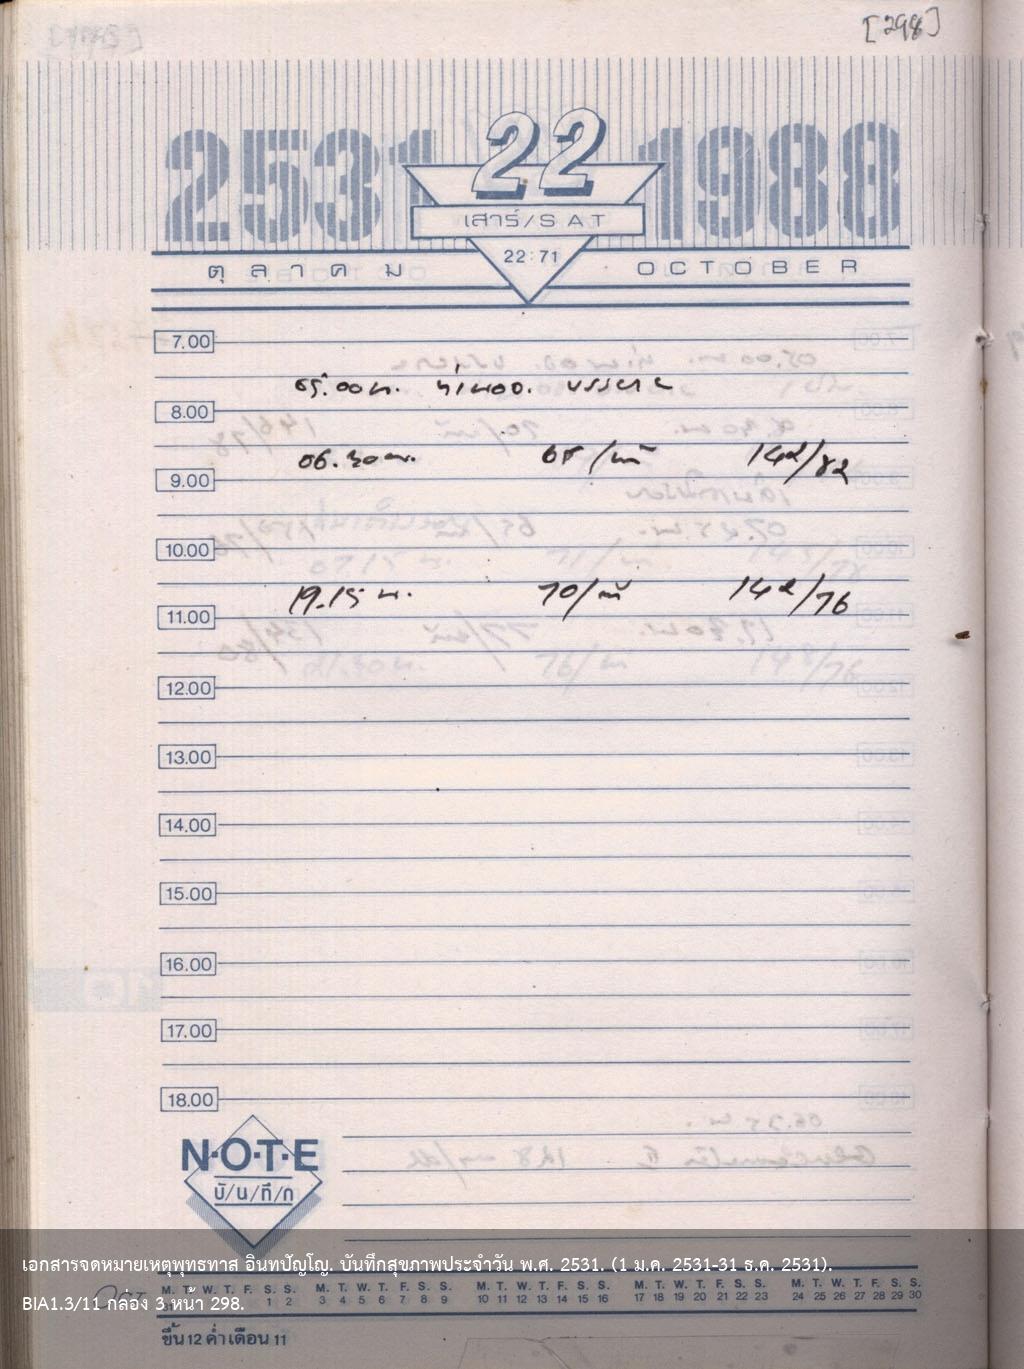 [298]
2531 22 1988
เสาร์/SAT
22:71
ตุลาคม OCTOBER
7.00
05.00 น. ท่านออ. บรรยาย
8.00
06.30 น. 65/นาที 142/82
9.00
10.00
19.15 น. 70/นาที 142/76
11.00
12.00
13.00
14.00
15.00
16.00
17.00
18.00
N·O·T·E
บั/น/ทึ/ก
เอกสารจดหมายเหตุพุทธทาส อินทปัญโญ. บันทึกสุขภาพประจำวัน พ.ศ. 2531. (1 ม.ค. 2531-31 ธ.ค. 2531).
M. T. W. T. F. S. S. M. T. W. T. F. S. S. M. T. W. T. F. S. S. M. T. W. T. F. S. S. M. T. W. T. F. S. S.
1 2 3 4 5 6 7 8 9 10 11 12 13 14 15 16 17 18 19 20 21 22 23 24 25 26 27 28 29 30
BIA1.3/11 กล่อง 3 หน้า 298.
ขึ้น 12 ค่ำ เดือน 11